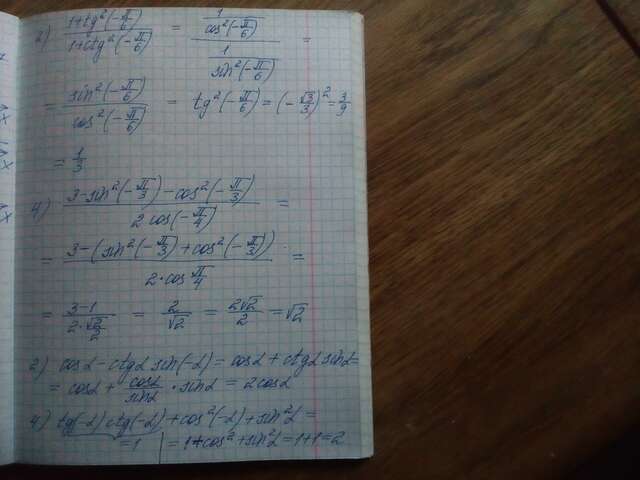 2) (1+tg²(-π/6))/(1+ctg²(-π/6)) = (1/cos²(-π/6))/(1/sin²(-π/6)) =
= sin²(-π/6)/cos²(-π/6) = tg²(-π/6) = (-√3/3)² = 3/9
= 1/3
4) (3-sin²(-π/3)-cos²(-π/3))/(2cos(-π/4)) =
= (3-(sin²(-π/3)+cos²(-π/3)))/(2·cos π/4) =
= (3-1)/(2·√2/2) = 2/√2 = 2√2/2 = √2
2) cosα-ctgα sin(-α) = cosα+ctgα sinα=
= cosα + cosα/sinα · sinα = 2cosα
4) tg(-α) ctg(-α)+cos²(-α)+sin²α =
=1 | = 1+cos²+sin²α = 1+1=2